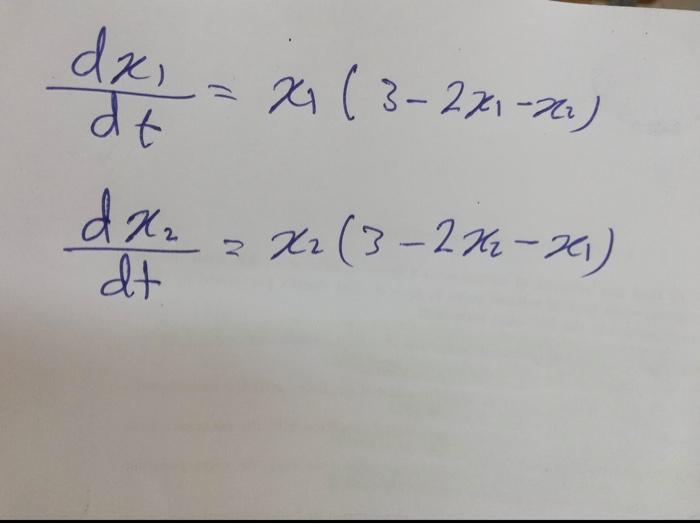 dx₁/dt = x₁ ( 3 - 2x₁ - x₂)
dx₂/dt = x₂ (3 - 2x₂ - x₁)